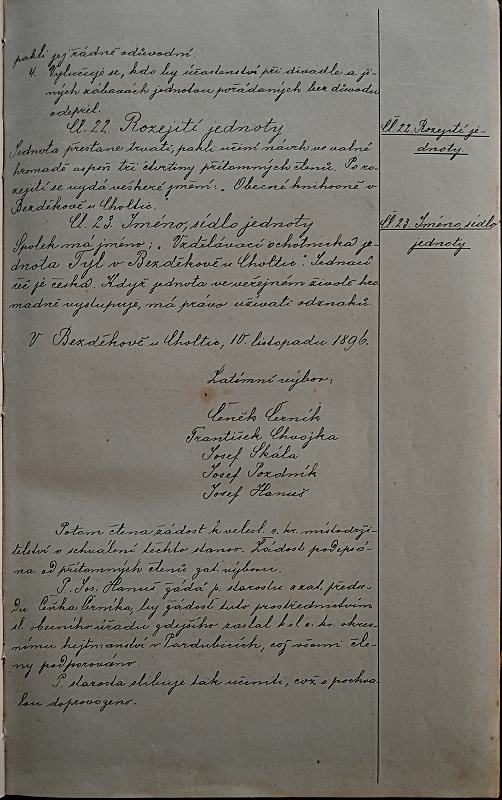 pakli jej řádně odůvodní.
4. Vylučuje se, kdo by účastenství při divadle a ji-
ných zábavách jednotou pořádaných bez důvodu
odepřel.
Čl. 22. Rozejití jednoty
Čl. 22. Rozejití je-
dnoty
Jednota přestane trvati, pakli učiní návrh ve valné
hromadě aspoň tři čtvrtiny přítomných členů. Po ro-
zejití se vydá veškeré jmění: „Obecné knihovně v
Bezděkově u Choltic."
Čl. 23. Jméno, sídlo jednoty
Čl. 23. Jméno, sídlo
jednoty
Spolek má jméno: „Vzdělávací ochotnická je-
dnota Tyl v Bezděkově u Choltic". Jednací
řeč je česká. Když jednota ve veřejném životě hro
madně vystupuje, má právo užívati odznaků.
V Bezděkově u Choltic, 10 listopadu 1896.
Zatímní výbor:
Čeněk Černík
František Chvojka
Josef Skála
Josef Pozdník
Josef Hanuš
Potom čtena žádost k velesl. c. kr. místodrži-
telství o schválení těchto stanov. Žádost podepsá-
na od přítomných členů zat. výboru.
P. Jos. Hanuš žádá p. starostu a zat. předse-
du Čeňka Černíka, by žádost tuto prostřednictvím
sl. obecního úřadu zdejšího zaslal k sl. c. kr. okres-
nímu hejtmanství v Pardubicích, což všemi čle-
ny podporováno.
P. starosta slibuje tak učiniti, což s pochva-
lou doprovozeno.